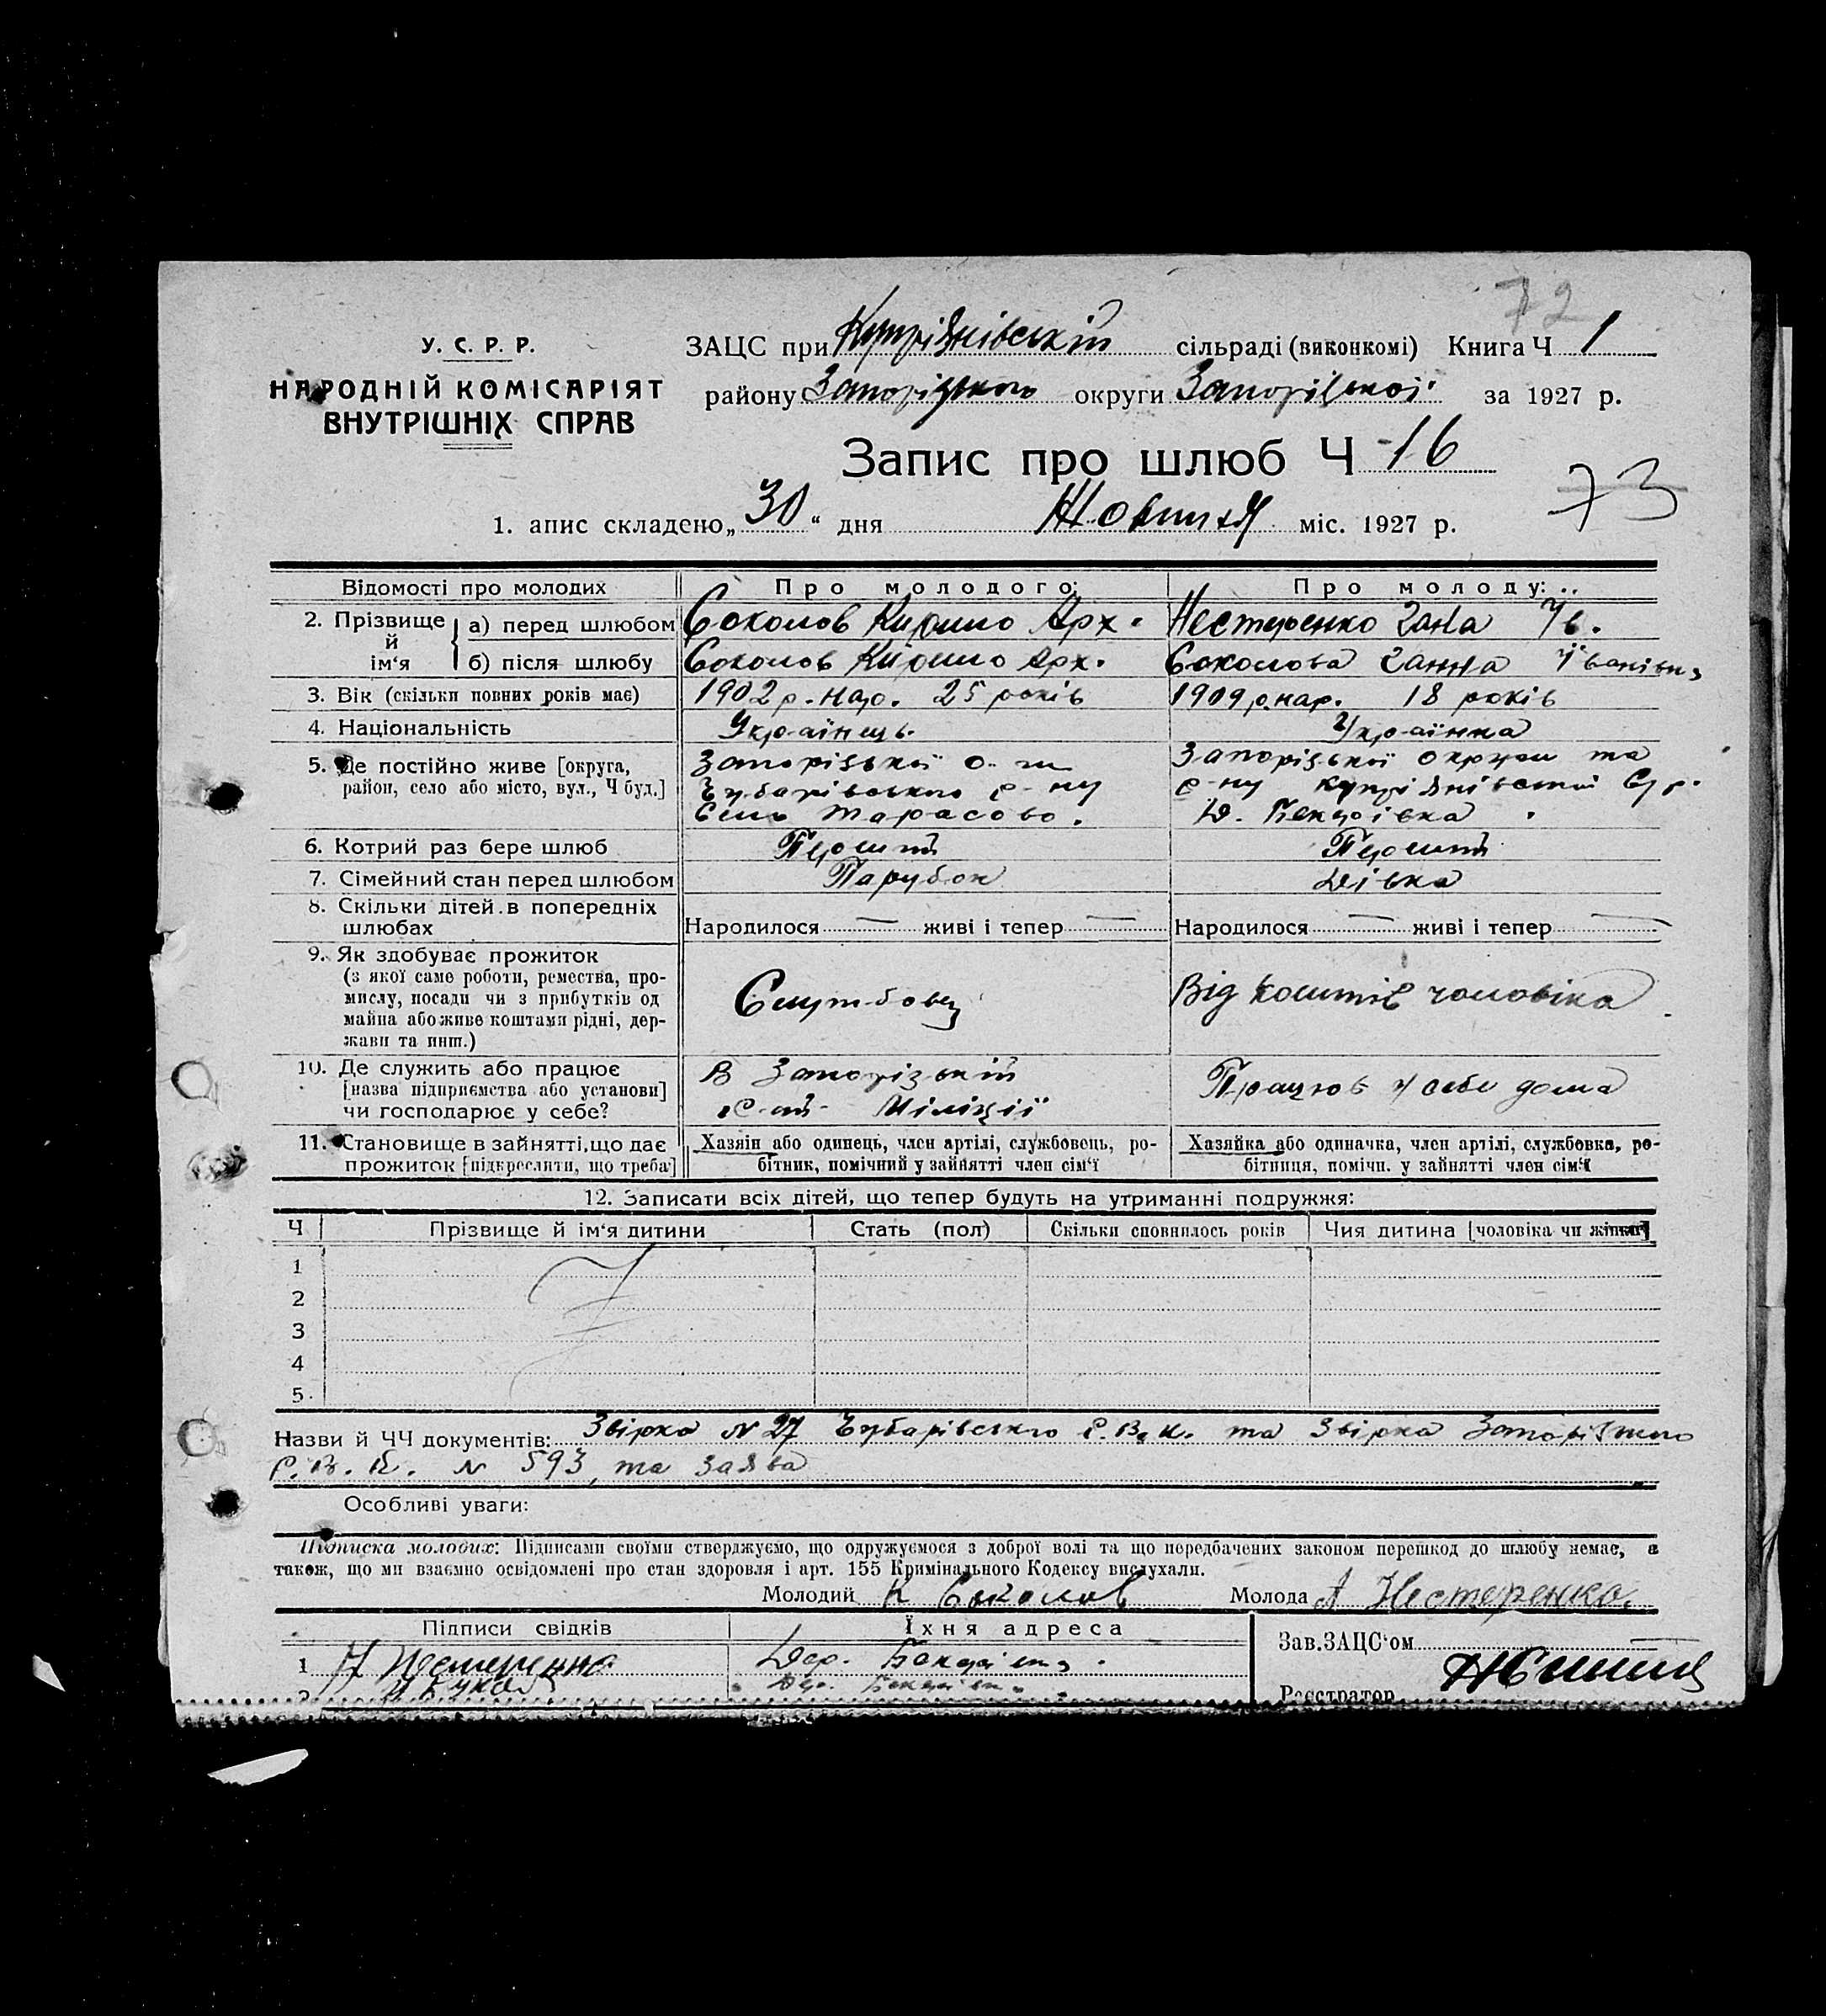 72
У. С. Р. Р.
НАРОДНІЙ КОМІСАРІЯТ
ВНУТРІШНІХ СПРАВ
ЗАЦС при Купріянівській сільраді (виконкомі) Книга Ч 1
району Запорізького округи Запорізької за 1927 р.
Запис про шлюб Ч 16
73
1. апис складено „30“ дня Жовтня міс. 1927 р.
Відомості про молодих Про молодого: Про молоду:
2. Прізвище й ім‘я а) перед шлюбом Соколов Кирило Арх. Нестеренко Гана Ів.
б) після шлюбу Соколов Кирило Арх. Соколова Ганна Іванівна
3. Вік (скільки повних років має) 1902 р. нар. 25 років 1909 р. нар. 18 років
4. Національність Українець Українка
5. Де постійно живе [округа, Запорізької о-ги Запорізької округи та
район, село або місто, вул., Ч буд.] Чубарівського р-ну р-ну Купріянівської С/р.
Село Тарасово. Д.
6. Котрий раз бере шлюб Перший Перший
7. Сімейний стан перед шлюбом Парубок Дівка
8. Скільки дітей в попередніх
шлюбах Народилося — живі і тепер — Народилося — живі і тепер —
9. Як здобуває прожиток
(з якої саме роботи, ремества, про-
мислу, посади чи з прибутків од Службовец Від коштів чоловіка
майна або живе коштами рідні, дер-
жави та инш.)
10. Де служить або працює В Запорізькій
[назва підприємства або установи] Міліції Працює у себе дома
чи господарює у себе?
11. Становище в зайнятті, що дає Хазяін або одинець, член артілі, службовець, ро- Хазяйка або одиначка, член артілі, службовка, ро-
прожиток [підкреслити, що треба] бітник, помічний у зайнятті член сім‘ї бітниця, помічн. у зайнятті член сім‘ї
12. Записати всіх дітей, що тепер будуть на утриманні подружжя:
Ч Прізвище й ім‘я дитини Стать (пол) Скільки сповнилось років Чия дитина [чоловіка чи жінки]
1
2
3
4
5
Назви й ЧЧ документів: Звірка N 27 Чубарівського Р.В.К. та Звірка Запорізького
Р. В. К. N 593, та заява
Особливі уваги:
Підписка молодих: Підписами своїми стверджуємо, що одружуємося з доброї волі та що передбачених законом перешкод до шлюбу немає, а
також, що ми взаємно освідомлені про стан здоровля і арт. 155 Кримінального Кодексу вислухали.
Молодий К Соколов Молода А Нестеренко
Підписи свідків Їхня адреса Зав. ЗАЦС‘ом
1 Нестеренко Дер.
Реєстратор